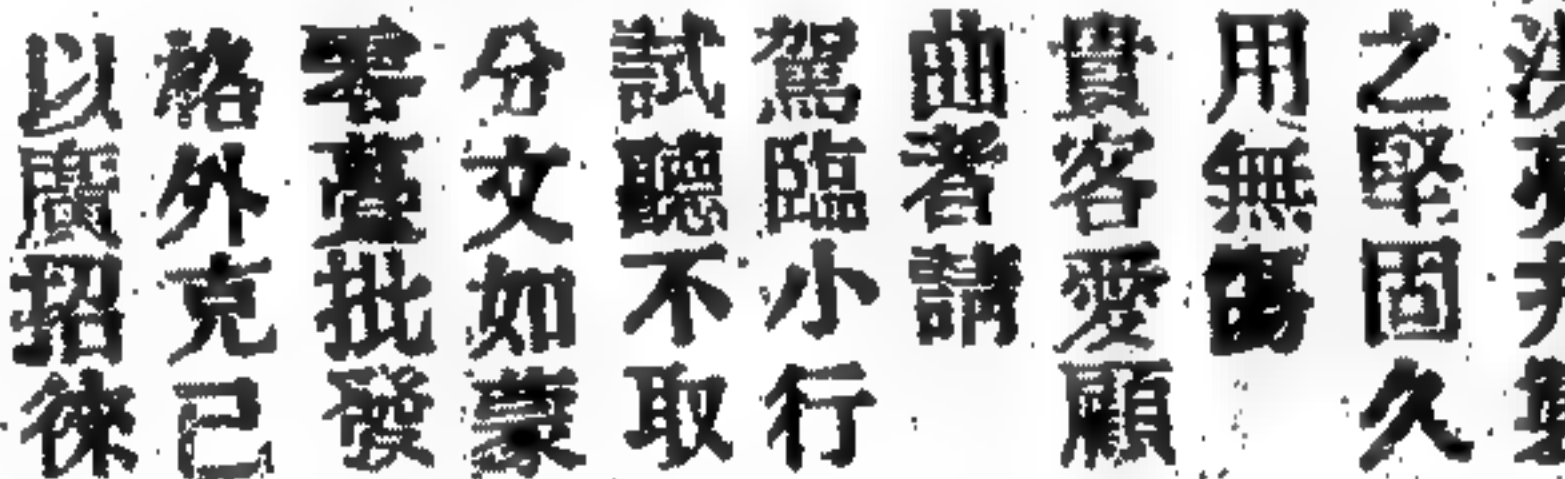 之堅固久
用無
貴客愛顧
曲者請
駕臨小行
試聽不取
分文如蒙
零躉批發
格外克己
以廣招徠